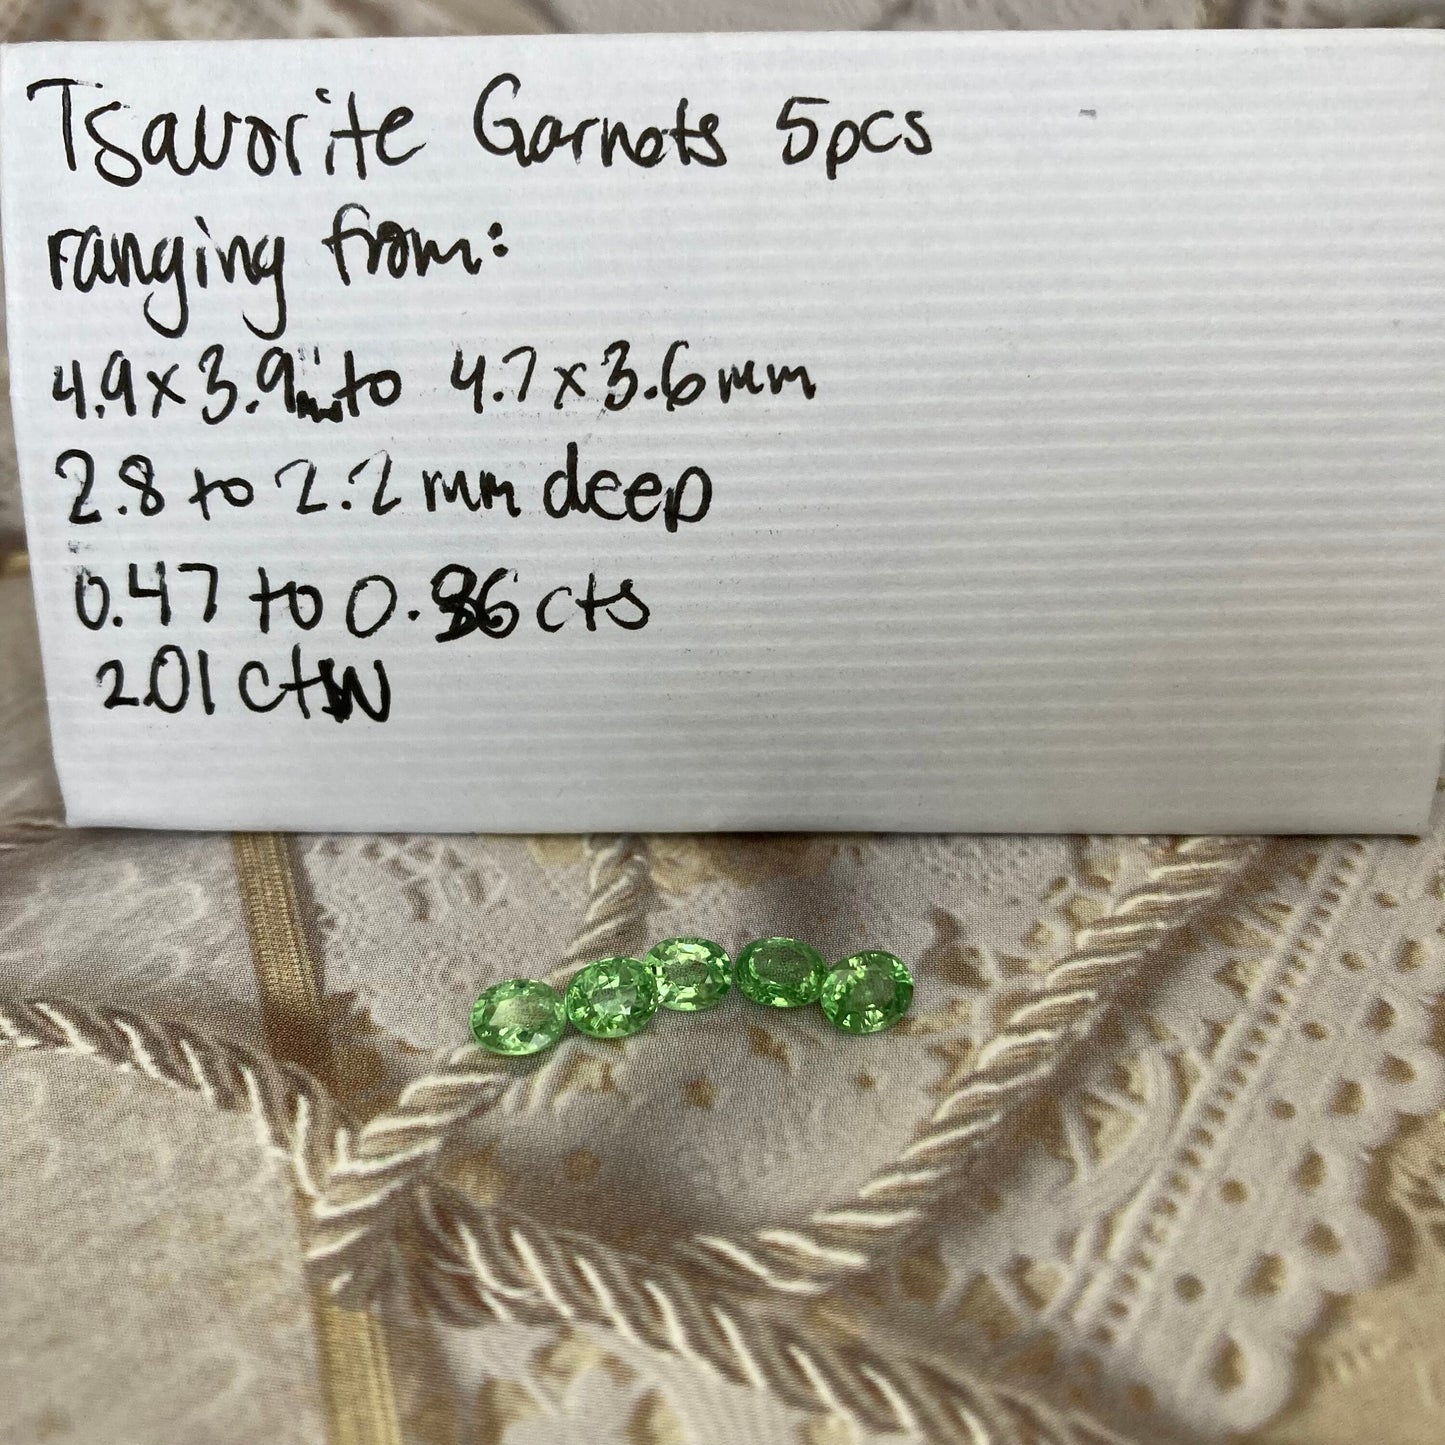 Tsavorite Garnets 5pcs
ranging from:
4.9x3.9mm to 4.7x3.6mm
2.8 to 2.2 mm deep
0.47 to 0.36 cts
2.01 ctw